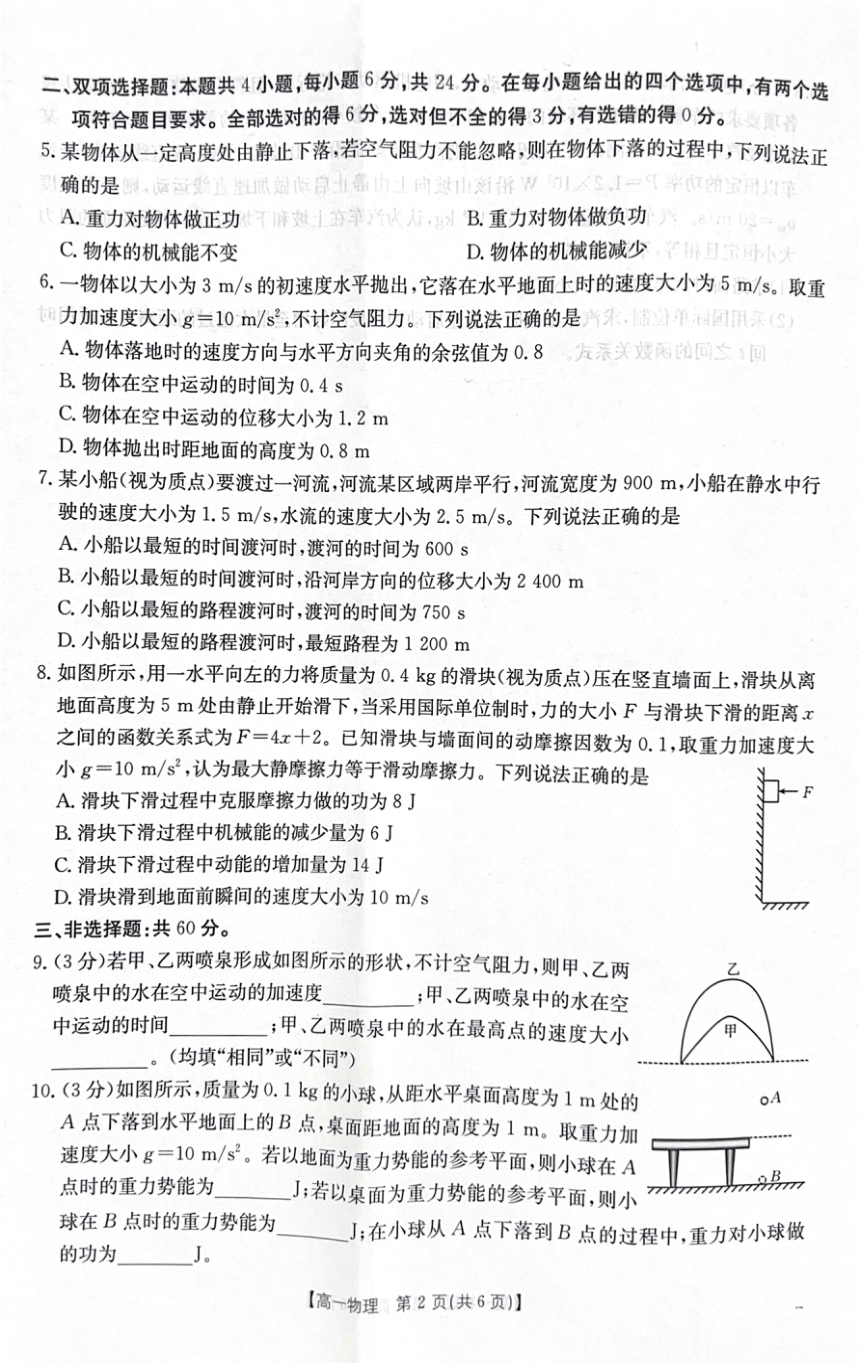 二、双项选择题:本题共4小题,每小题6分,共24分。在每小题给出的四个选项中,有两个选
项符合题目要求。全部选对的得6分,选对但不全的得3分,有选错的得0分。
5.某物体从一定高度处由静止下落,若空气阻力不能忽略,则在物体下落的过程中,下列说法正
确的是
A.重力对物体做正功 B.重力对物体做负功
C.物体的机械能不变 D.物体的机械能减少
6.一物体以大小为3 m/s的初速度水平抛出,它落在水平地面上时的速度大小为5 m/s。取重
力加速度大小g=10 m/s²,不计空气阻力。下列说法正确的是
A.物体落地时的速度方向与水平方向夹角的余弦值为0.8
B.物体在空中运动的时间为0.4 s
C.物体在空中运动的位移大小为1.2 m
D.物体抛出时距地面的高度为0.8 m
7.某小船(视为质点)要渡过一河流,河流某区域两岸平行,河流宽度为900 m,小船在静水中行
驶的速度大小为1.5 m/s,水流的速度大小为2.5 m/s。下列说法正确的是
A.小船以最短的时间渡河时,渡河的时间为600 s
B.小船以最短的时间渡河时,沿河岸方向的位移大小为2 400 m
C.小船以最短的路程渡河时,渡河的时间为750 s
D.小船以最短的路程渡河时,最短路程为1 200 m
8.如图所示,用一水平向左的力将质量为0.4 kg的滑块(视为质点)压在竖直墙面上,滑块从离
地面高度为5 m处由静止开始滑下,当采用国际单位制时,力的大小F与滑块下滑的距离x
之间的函数关系式为F=4x+2。已知滑块与墙面间的动摩擦因数为0.1,取重力加速度大
小g=10 m/s²,认为最大静摩擦力等于滑动摩擦力。下列说法正确的是
A.滑块下滑过程中克服摩擦力做的功为8 J
B.滑块下滑过程中机械能的减少量为6 J
C.滑块下滑过程中动能的增加量为14 J
D.滑块滑到地面前瞬间的速度大小为10 m/s
F
三、非选择题:共60分。
9.(3分)若甲、乙两喷泉形成如图所示的形状,不计空气阻力,则甲、乙两
喷泉中的水在空中运动的加速度________;甲、乙两喷泉中的水在空
中运动的时间________;甲、乙两喷泉中的水在最高点的速度大小
________。(均填“相同”或“不同”)
乙
甲
10.(3分)如图所示,质量为0.1 kg的小球,从距水平桌面高度为1 m处的
A点下落到水平地面上的B点,桌面距地面的高度为1 m。取重力加
速度大小g=10 m/s²。若以地面为重力势能的参考平面,则小球在A
点时的重力势能为________J;若以桌面为重力势能的参考平面,则小
球在B点时的重力势能为________J;在小球从A点下落到B点的过程中,重力对小球做
的功为________J。
A
B
【高一物理 第2页(共6页)】